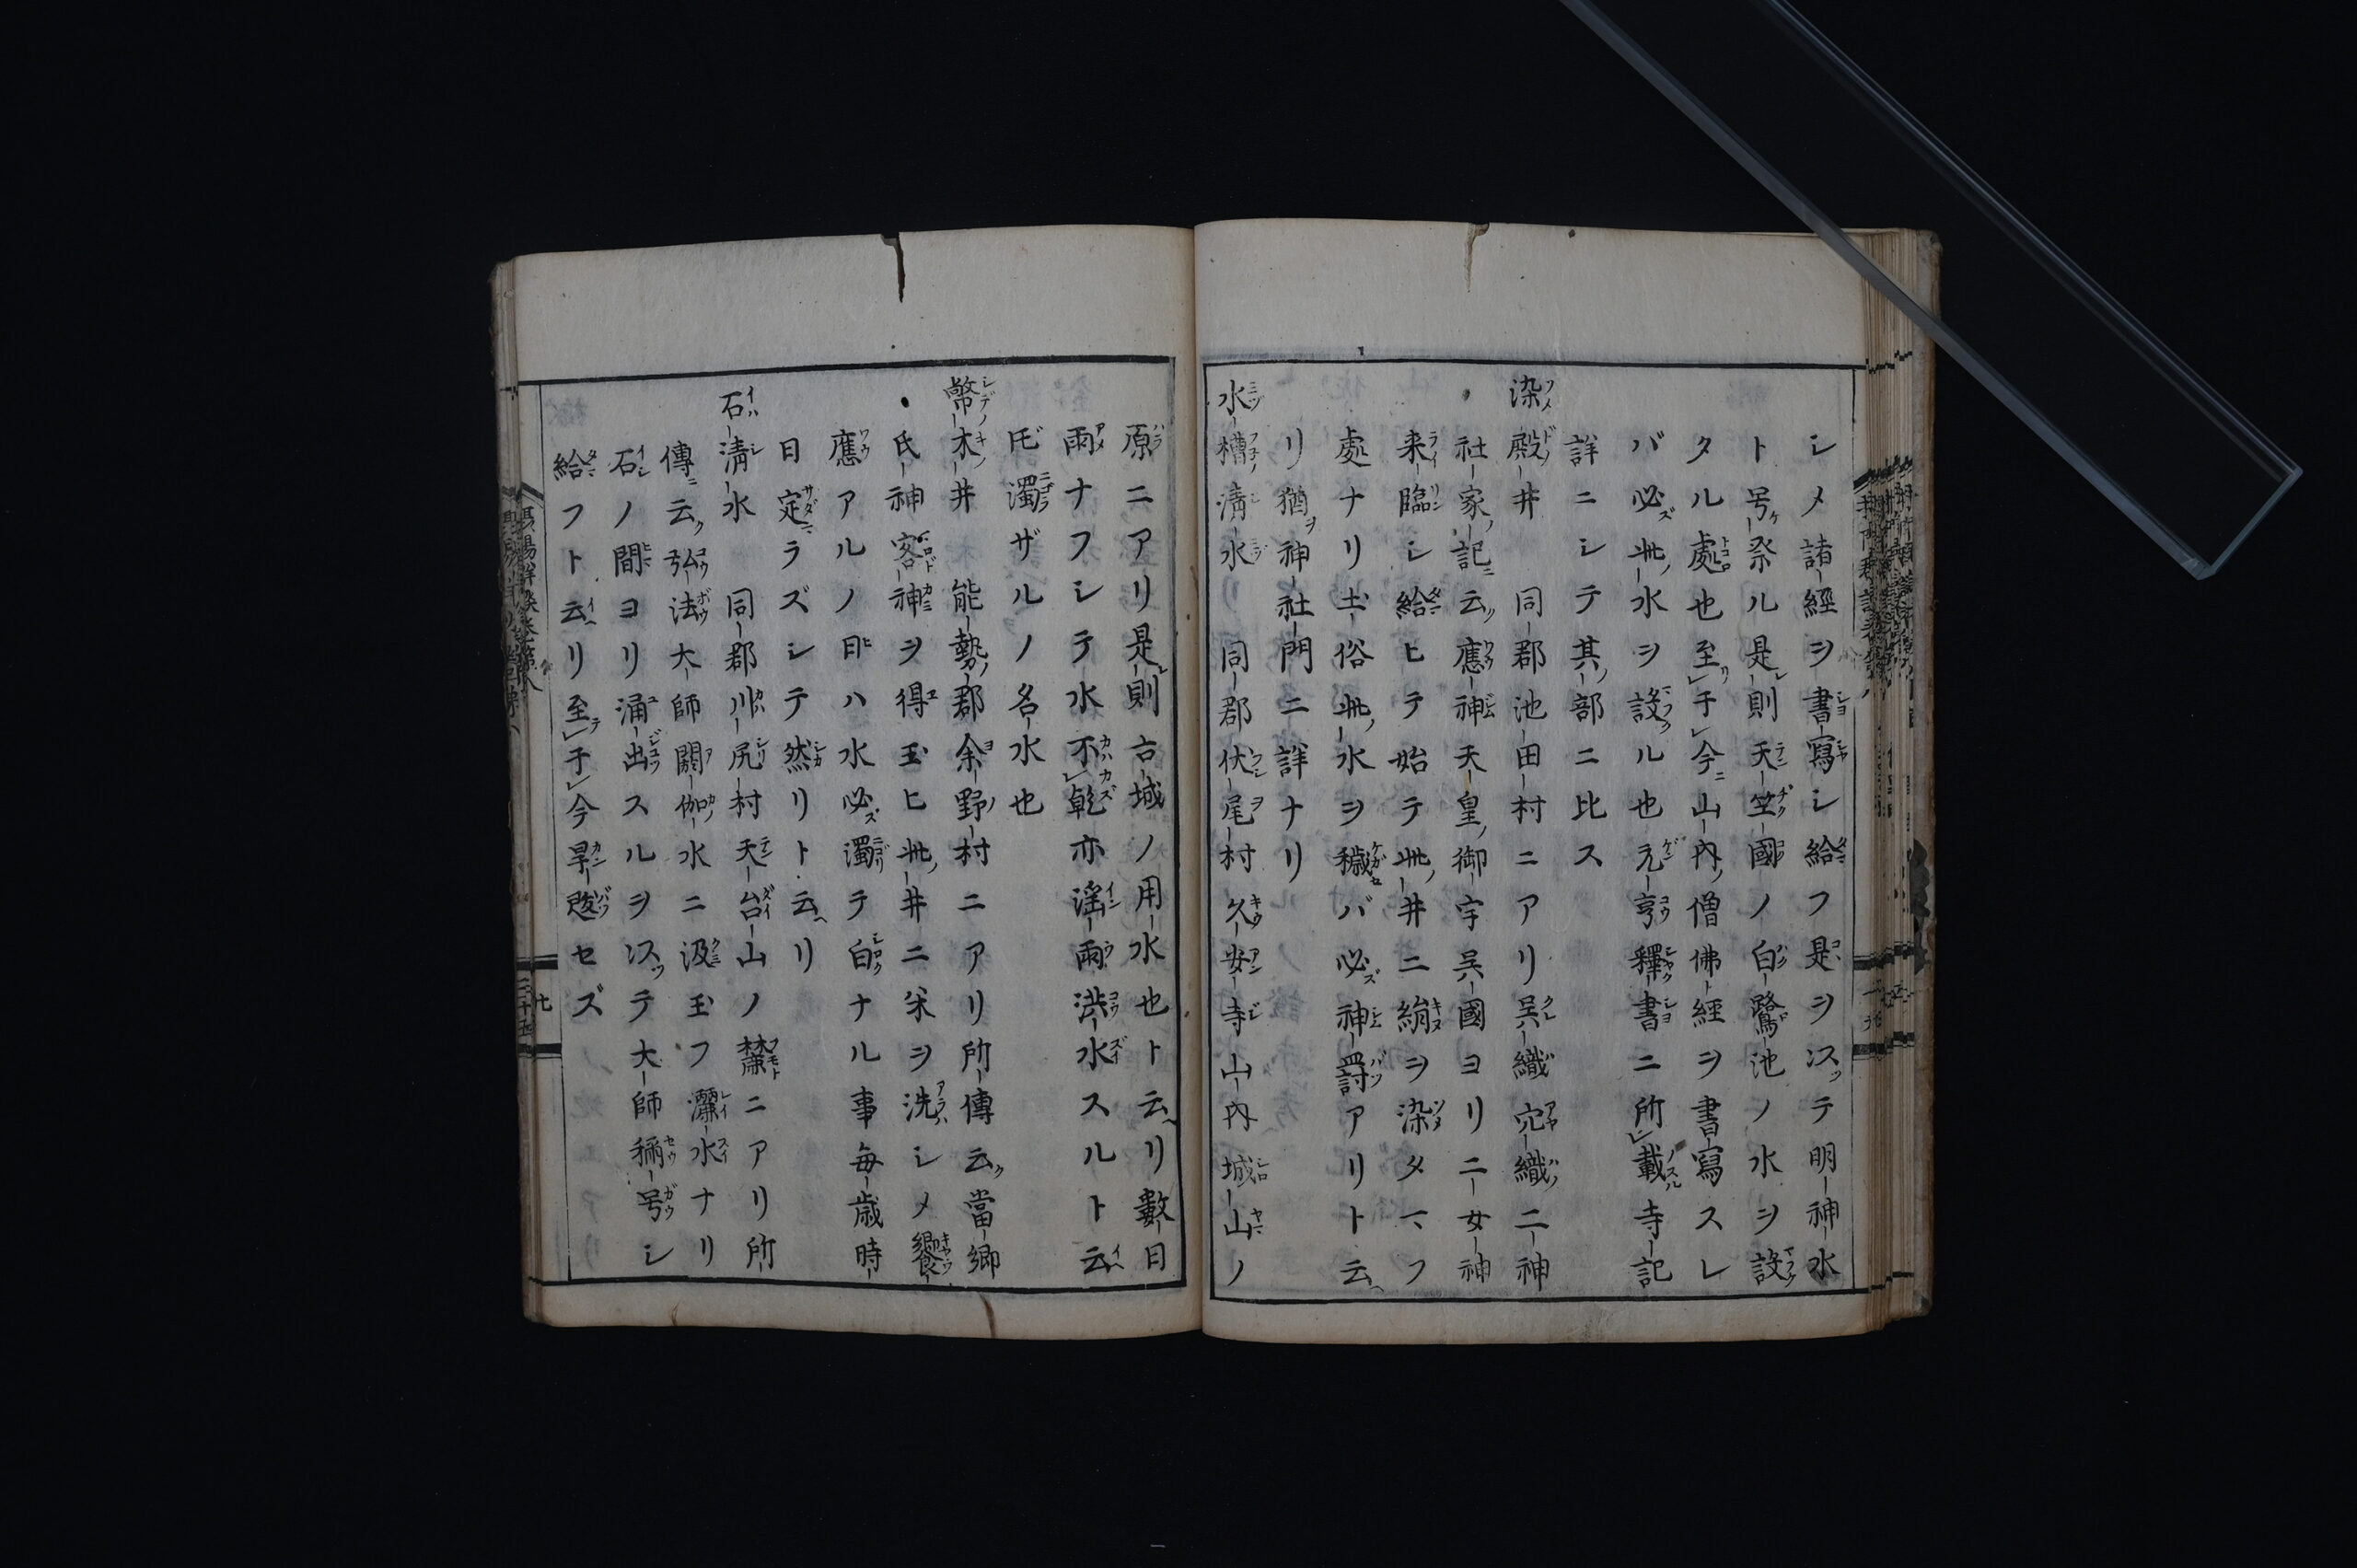 シメ諸經ヲ書寫シ給フ是ヲ以テ明神水
ト号ケ祭ル是則天竺國ノ白鷺池ノ水ヲ設
タル處也至于今山内ノ僧佛經ヲ書寫スレ
バ必此水ヲ設ル也元亨釋書ニ所載寺記
詳ニシテ其部ニ比ス
染殿井 同郡池田村ニアリ呉織穴織二神
社家ノ記ニ云應神天皇ノ御宇呉國ヨリ二女神
来臨シ給ヒテ始テ此井ニ絹ヲ染タマフ
處ナリ土俗此水ヲ穢セバ必神罸アリト云
リ猶神社門ニ詳ナリ
水槽清水 同郡伏尾村久安寺山内城山ノ
原ニアリ是則古城ノ用水也ト云リ數日
雨ナフシテ水不乾亦淫雨洪水スルト云
𪜈濁ザルノ名水也
幣木井 能勢郡余野村ニアリ所傳云當郷
氏神客神ヲ得玉ヒ此井ニ米ヲ洗シメ饗
應アルノ日ハ水必濁テ白ナル事毎歳時
日定ラズシテ然リト云リ
石清水 同郡川尻村天台山ノ麓ニアリ所
傳云弘法大師閼伽水ニ汲玉フ灑水ナリ
石ノ間ヨリ涌出スルヲ以テ大師稱号シ
給フト云リ至于今旱魃セズ